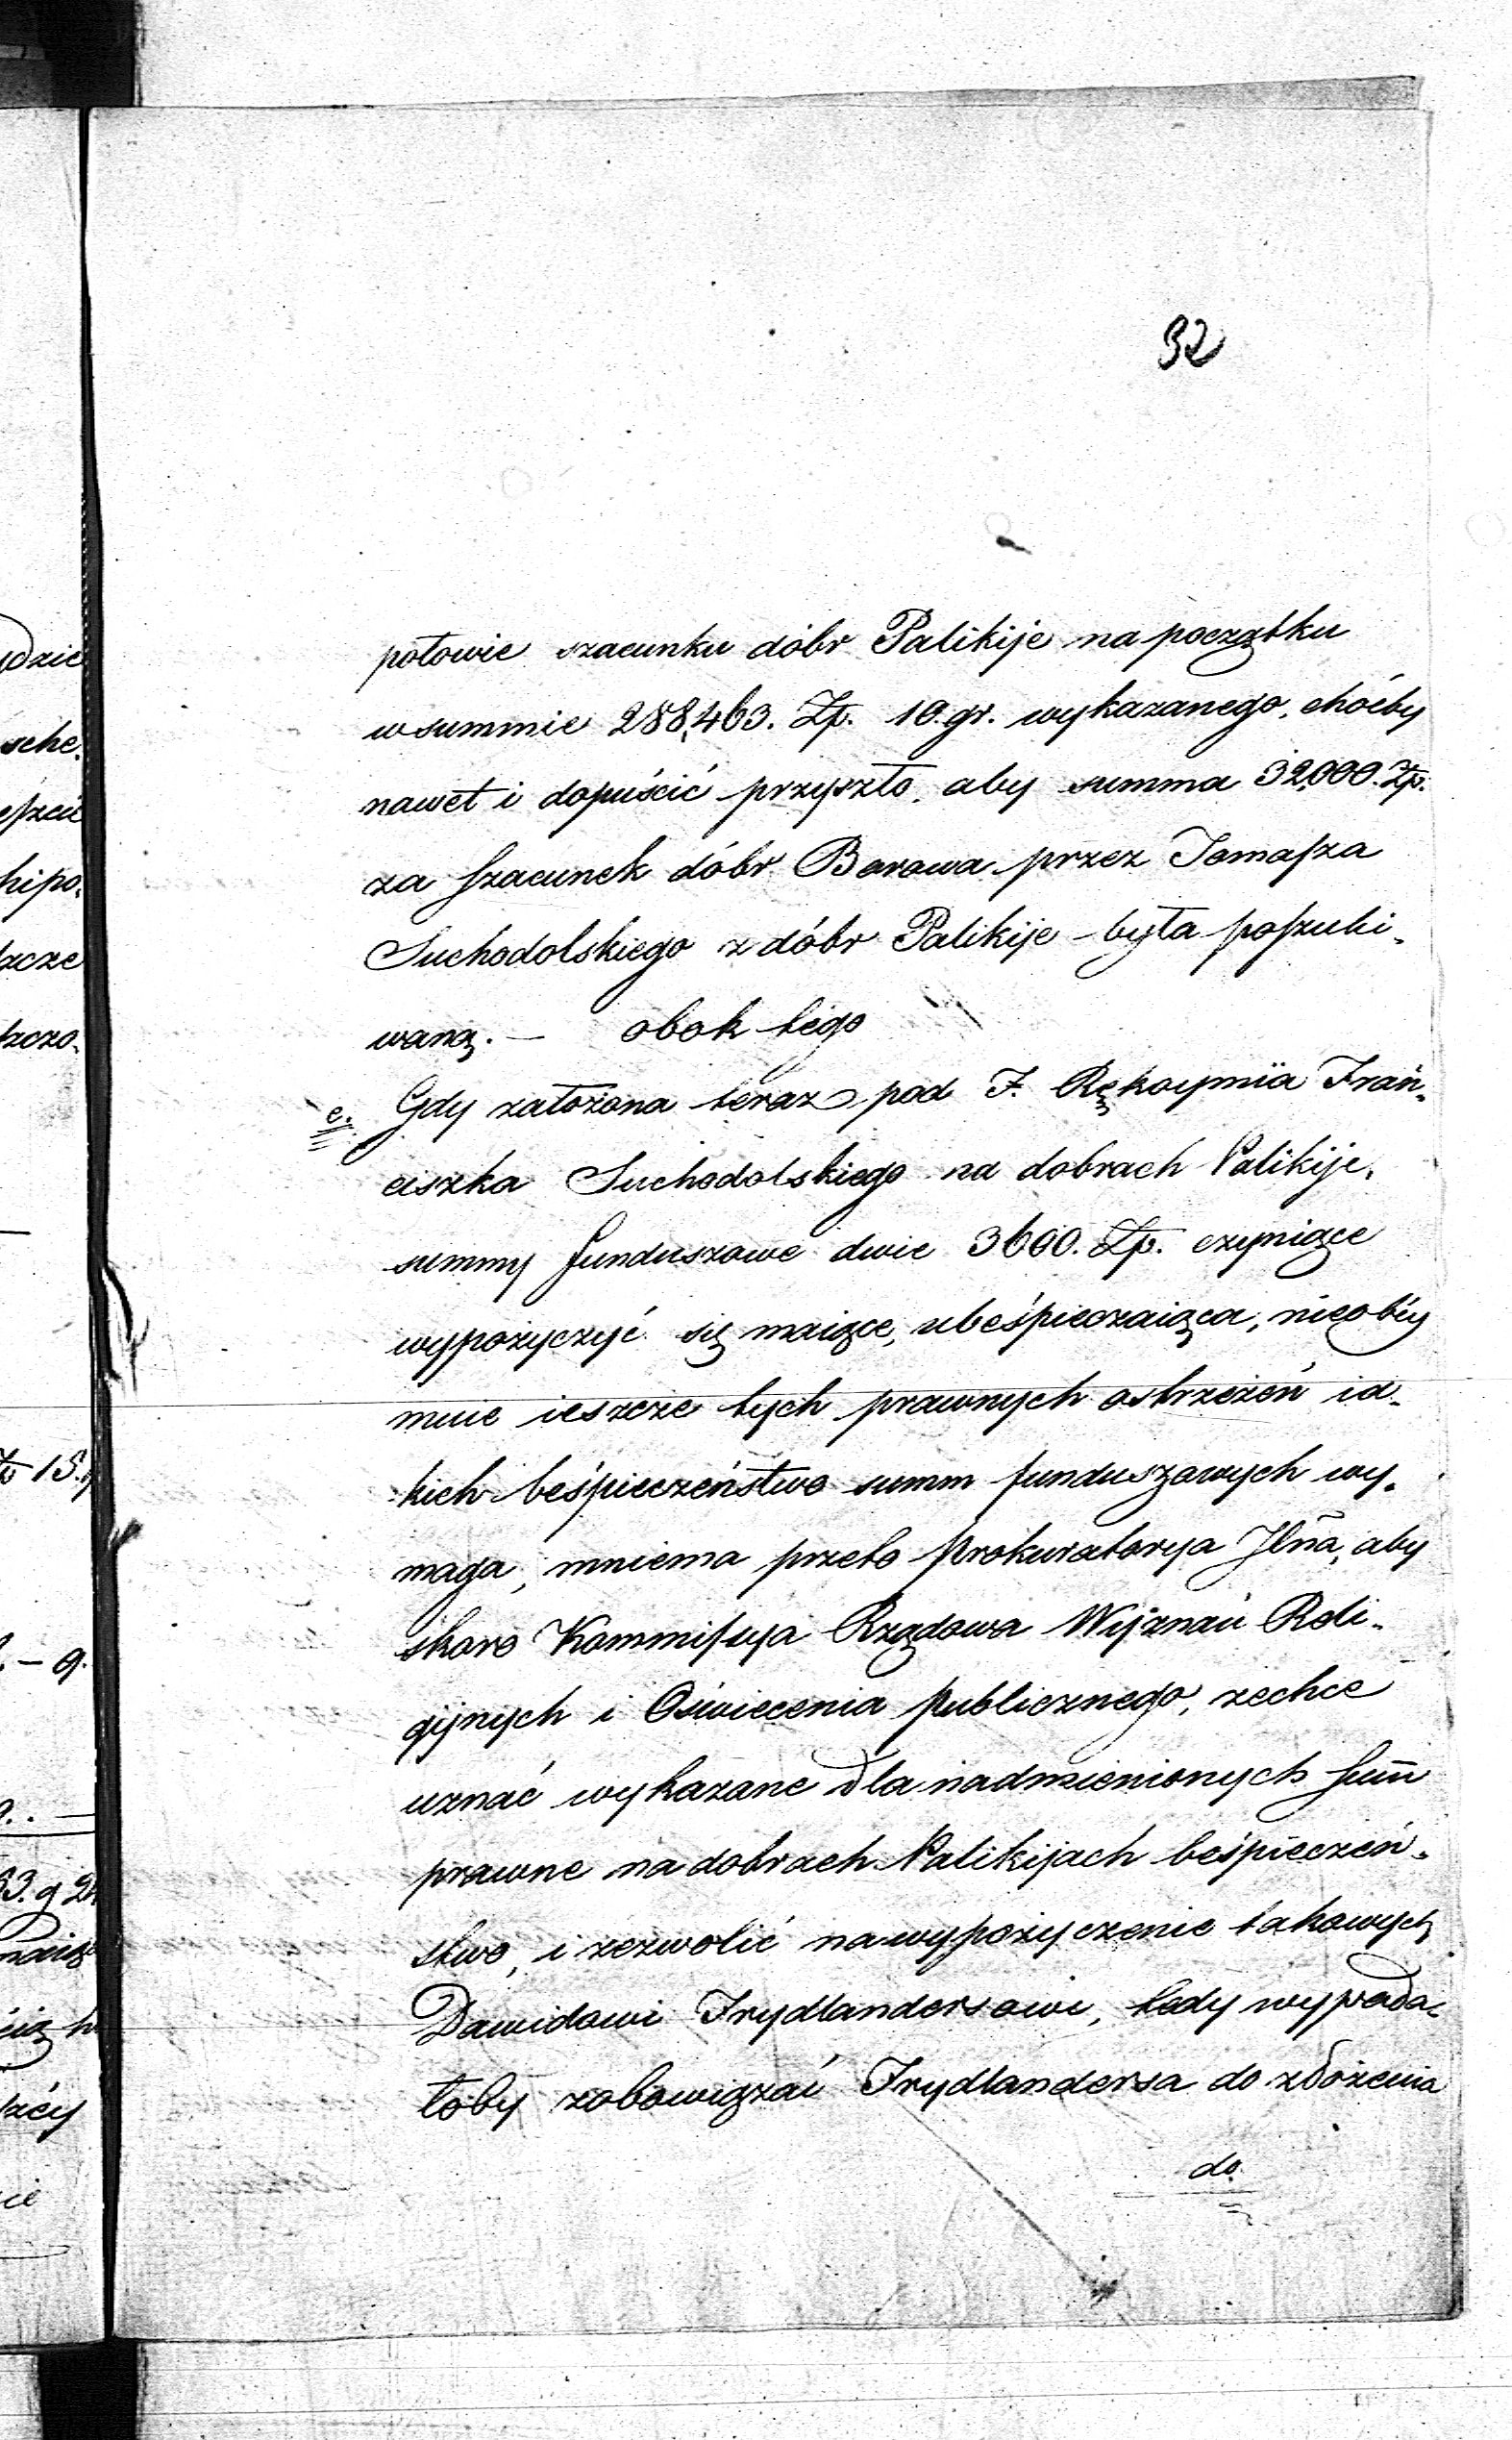 32
połowie szacunku dóbr Palikije na początku
w summie 288,463. Zp. 10. gr. wykazanego, choćby
nawet i dopuścić przyszło, aby summa 32,000. Zp.
za Szacunek dóbr Borowa przez Tomasza
Suchodolskiego z dóbr Palikije była poszuki-
waną. — obok tego
e. Gdy założona teraz pod F. Rękoymia Fran-
ciszka Suchodolskiego na dobrach Palikije,
summy funduszowe dwie 3600. Zp. czyniące
wypożyczyć się maiące, ubeśpieczaiąca, nieobey
muie ieszcze tych prawnych ostrzeżeń ia-
kich beśpieczeństwo summ funduszowych wy-
maga, mniema przeto Prokuratorya Jlna, aby
skoro Kommissya Rządowa Wyznań Reli-
gijnych i Oświecenia Publicznego, zechce
uznać wykazane dla nadmienionych Sum̄
prawne na dobrach Palikijach beśpieczeń-
stwo, i zezwolić na wypożyczenie takowych
Dawidowi Frydlandersowi, tedy wypada-
łoby zobowiązać Frydlandersa do złożenia
do
dzie
sche.
eszcie
hipo-
szcze
szczo-
15.
— 9.
93. g 24